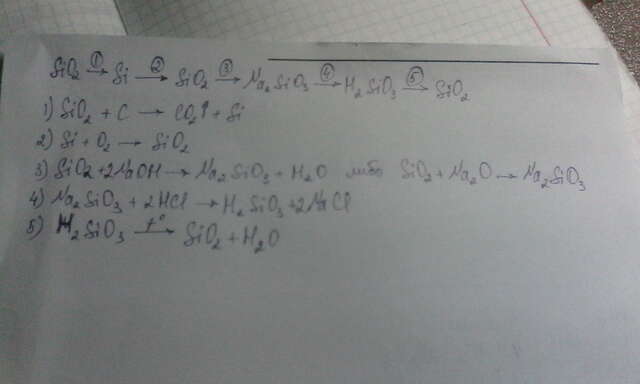 SiO₂ ①→ Si ②→ SiO₂ ③→ Na₂SiO₃ ④→ H₂SiO₃ ⑤→ SiO₂
1) SiO₂ + C → CO₂↑ + Si
2) Si + O₂ → SiO₂
3) SiO₂ + 2NaOH → Na₂SiO₃ + H₂O либо SiO₂ + Na₂O → Na₂SiO₃
4) Na₂SiO₃ + 2HCl → H₂SiO₃ + 2NaCl
5) H₂SiO₃ t°→ SiO₂ + H₂O